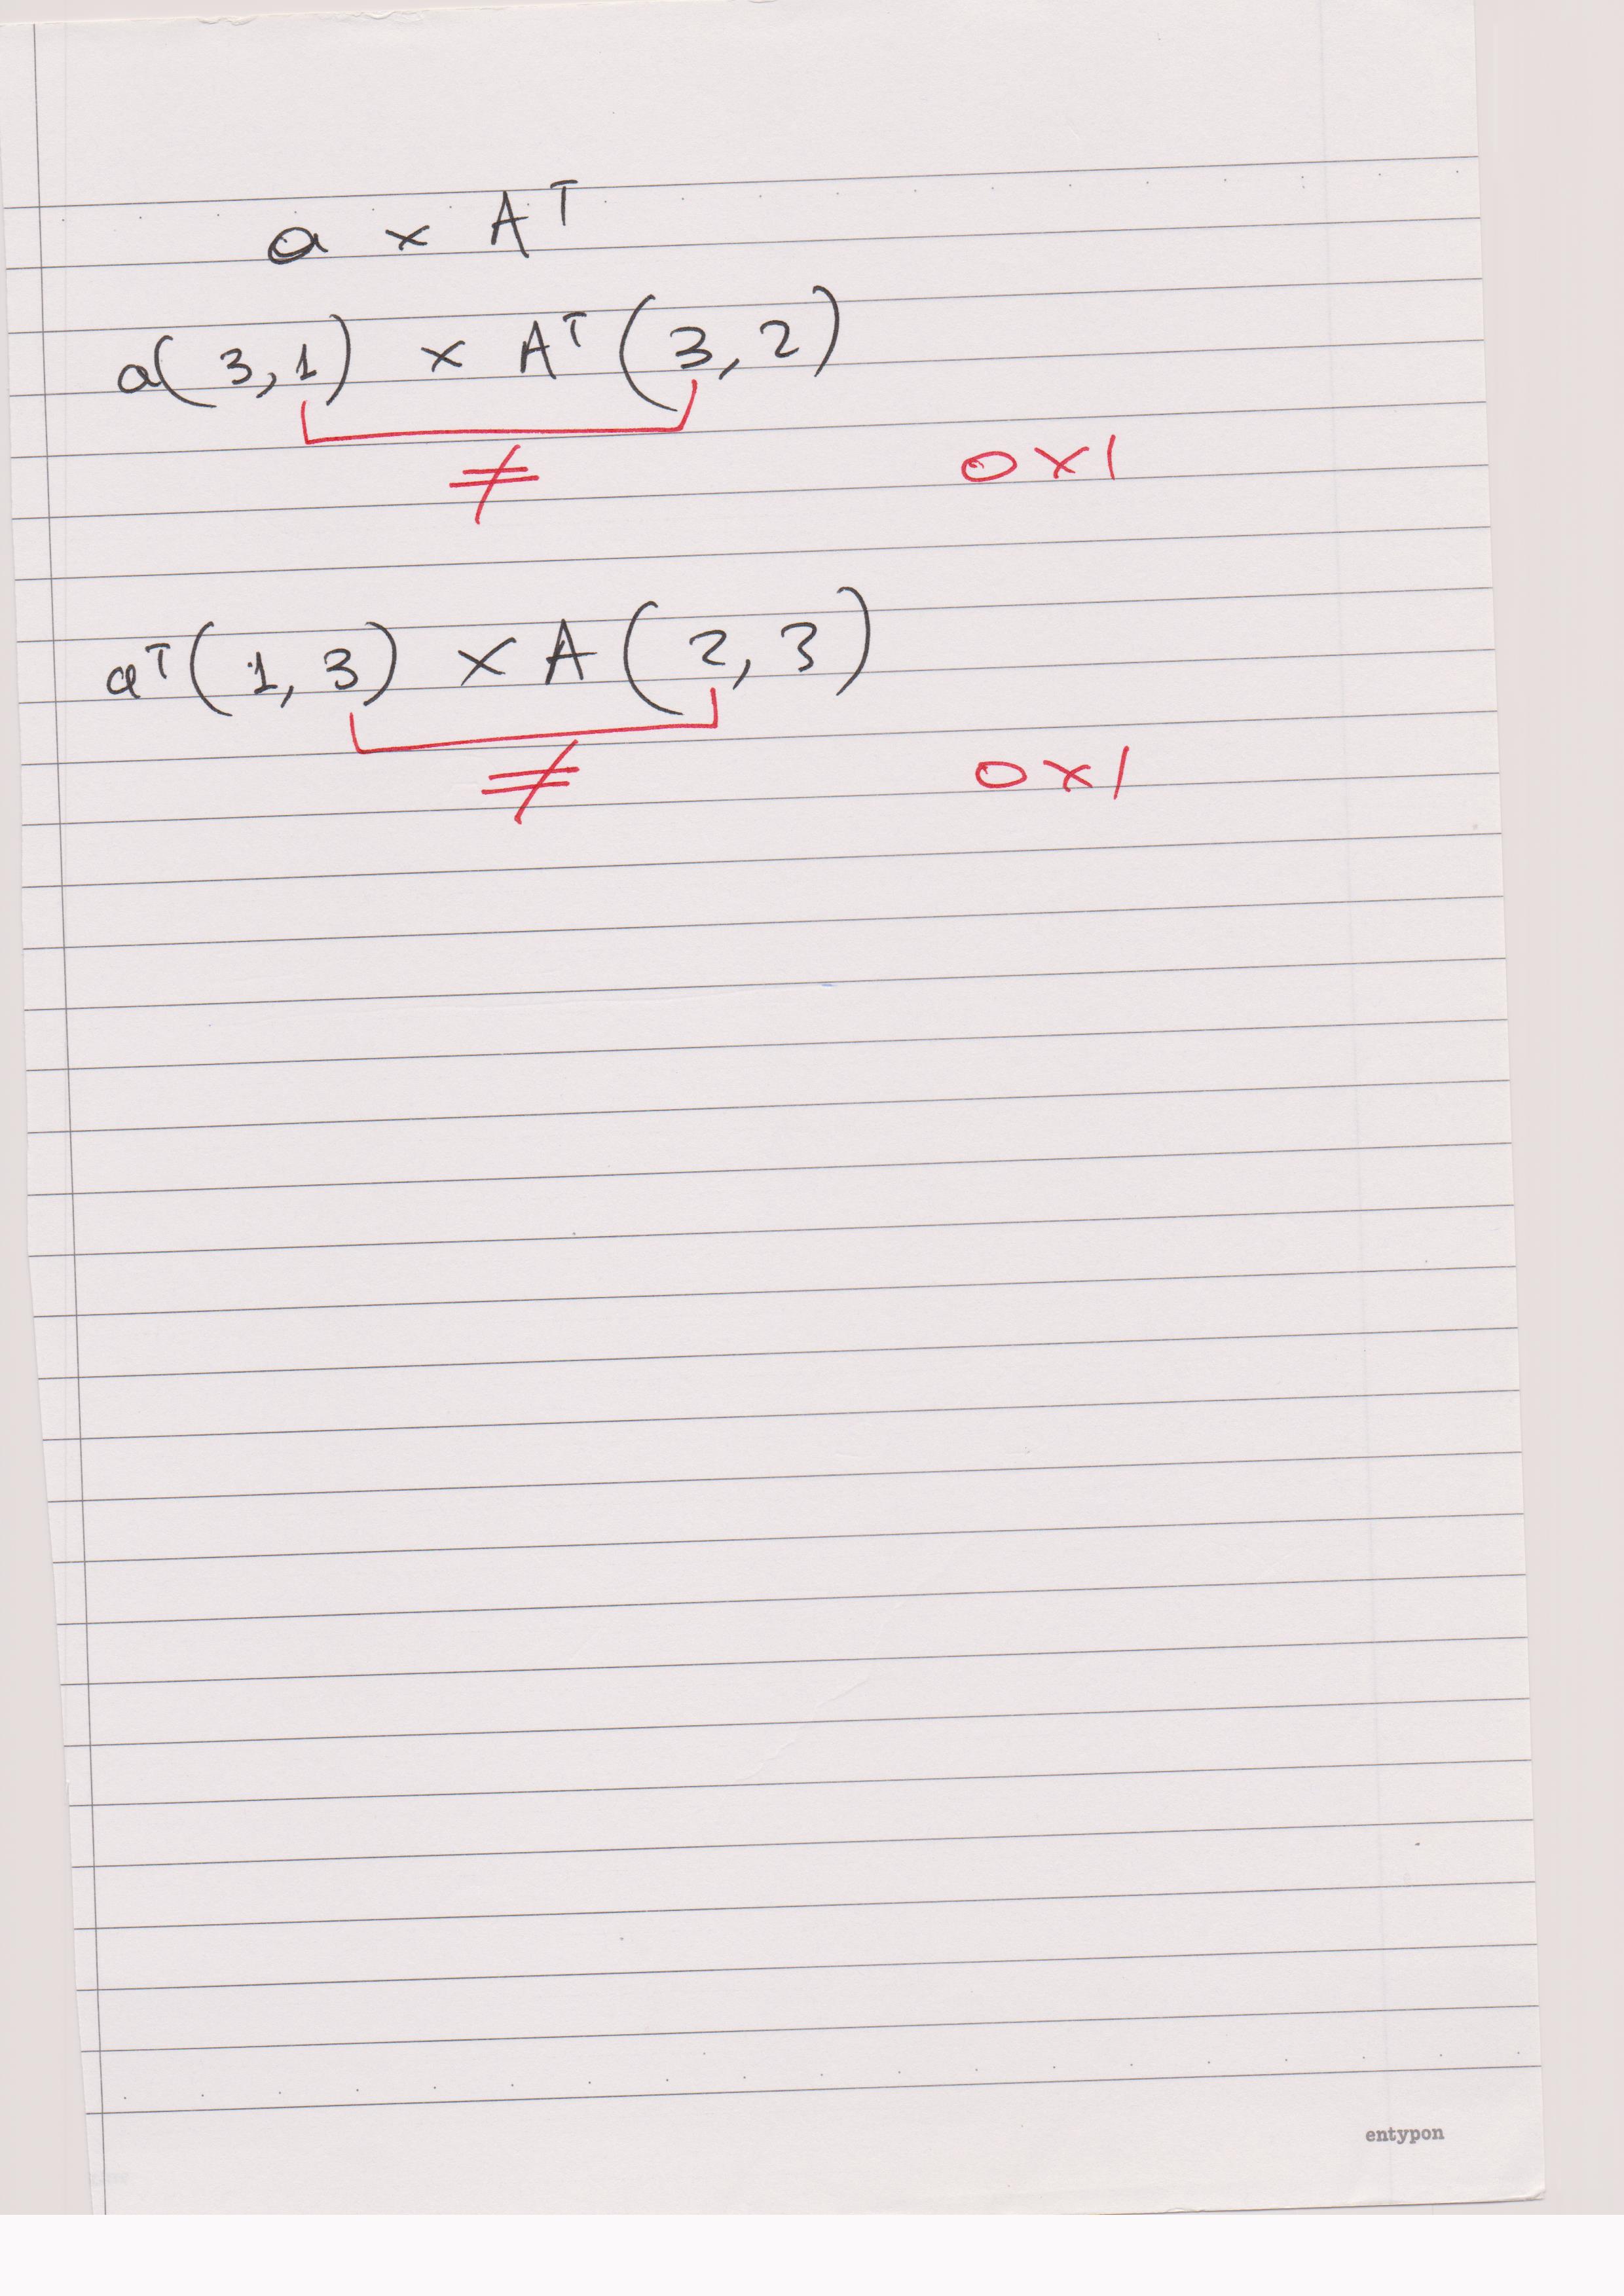 a × Aᵀ
a(3,1) × Aᵀ(3,2)
≠ OXI
aᵀ(1,3) × A(2,3)
≠ OXI
entypon